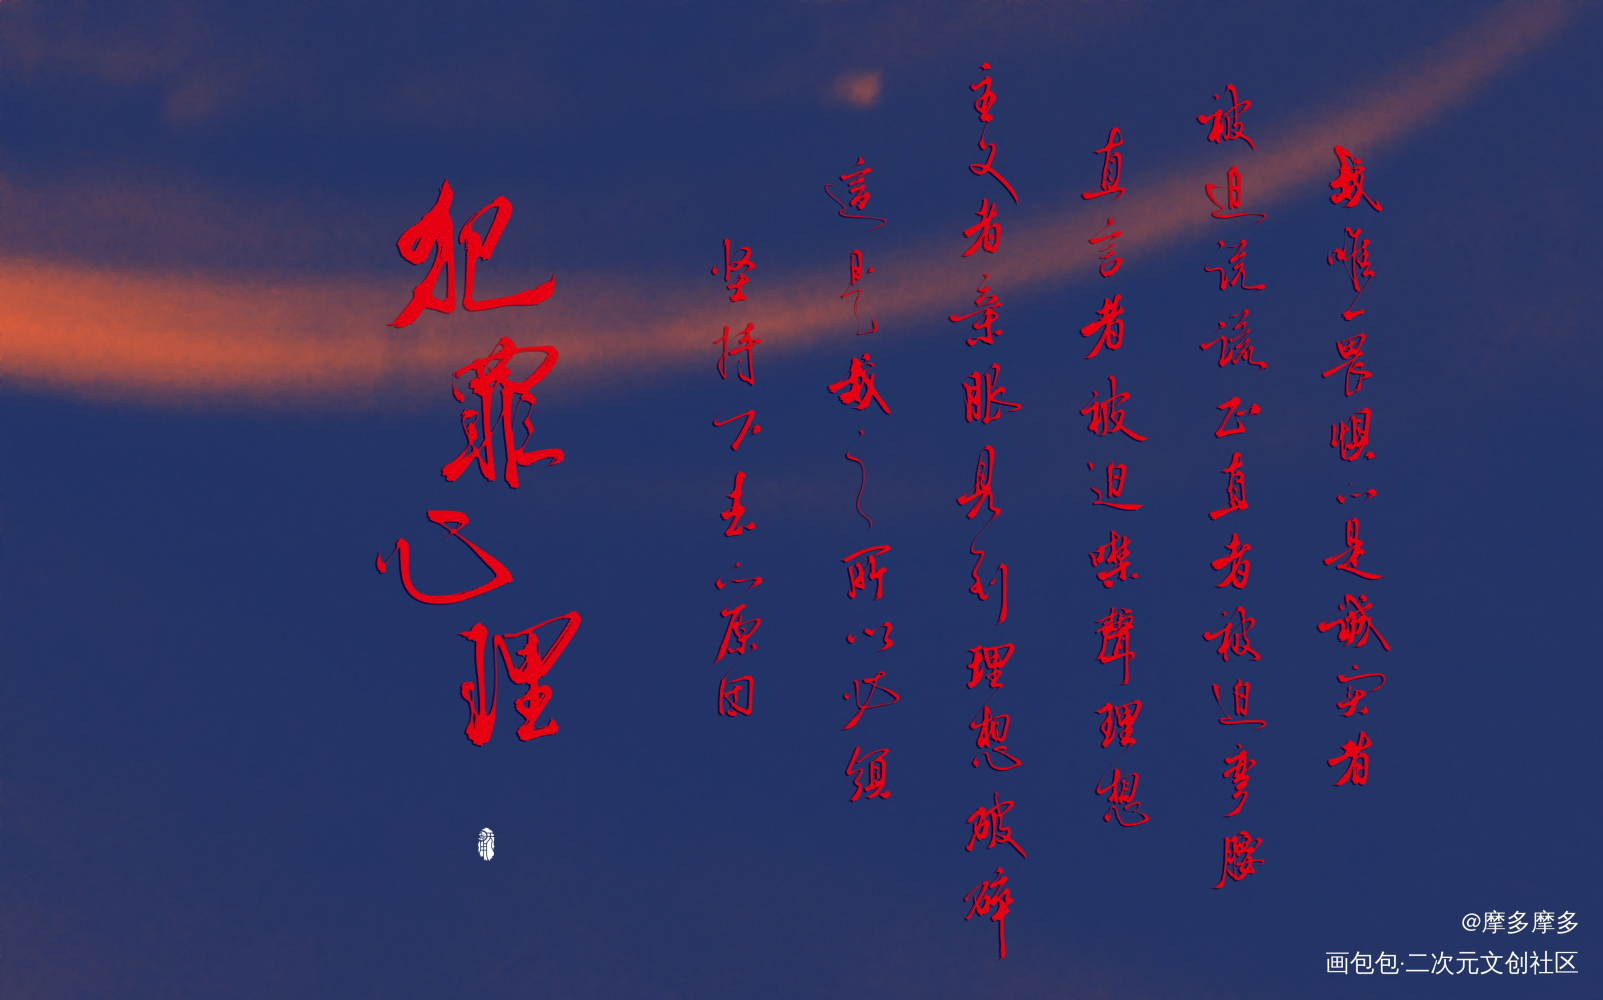 我唯一畏惧的是诚实者
被迫说谎正直者被迫弯腰
直言者被迫噤聲理想
主义者亲眼見到理想破碎
這是我之所以必須
坚持下去的原因
犯罪心理
@摩多摩多
画包包·二次元文创社区